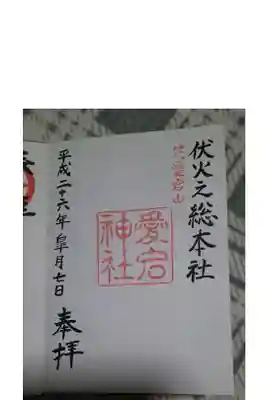 伏火之総本社
愛宕
神社
奉拝
平成二十六年皐月七日